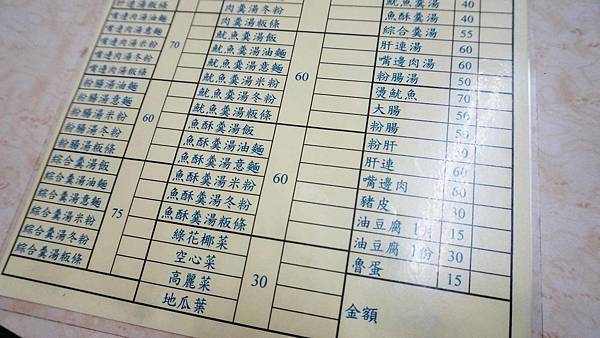 肝連湯粄條
嘴邊肉湯油麵
嘴邊肉湯意麵
嘴邊肉湯米粉
嘴邊肉湯冬粉
嘴邊肉湯粄條
70
粉腸湯油麵
粉腸湯意麵
粉腸湯米粉
粉腸湯冬粉
粉腸湯粄條
60
綜合羹湯飯
綜合羹湯油麵
綜合羹湯意麵
綜合羹湯米粉
綜合羹湯冬粉
綜合羹湯粄條
75
肉羹湯冬粉
肉羹湯粄條
魷魚羹湯飯
魷魚羹湯油麵
魷魚羹湯意麵
魷魚羹湯米粉
魷魚羹湯冬粉
魷魚羹湯粄條
60
魚酥羹湯飯
魚酥羹湯油麵
魚酥羹湯意麵
魚酥羹湯米粉
魚酥羹湯冬粉
魚酥羹湯粄條
60
綠花椰菜
空心菜
高麗菜
地瓜葉
30
魷魚羹湯 40
魚酥羹湯 40
綜合羹湯 55
肝連湯 60
嘴邊肉湯 60
粉腸湯 50
燙魷魚 70
大腸 50
粉腸 50
粉肝 60
肝連 60
嘴邊肉 60
豬皮 30
油豆腐 1片 15
油豆腐 1份 30
魯蛋 15
金額